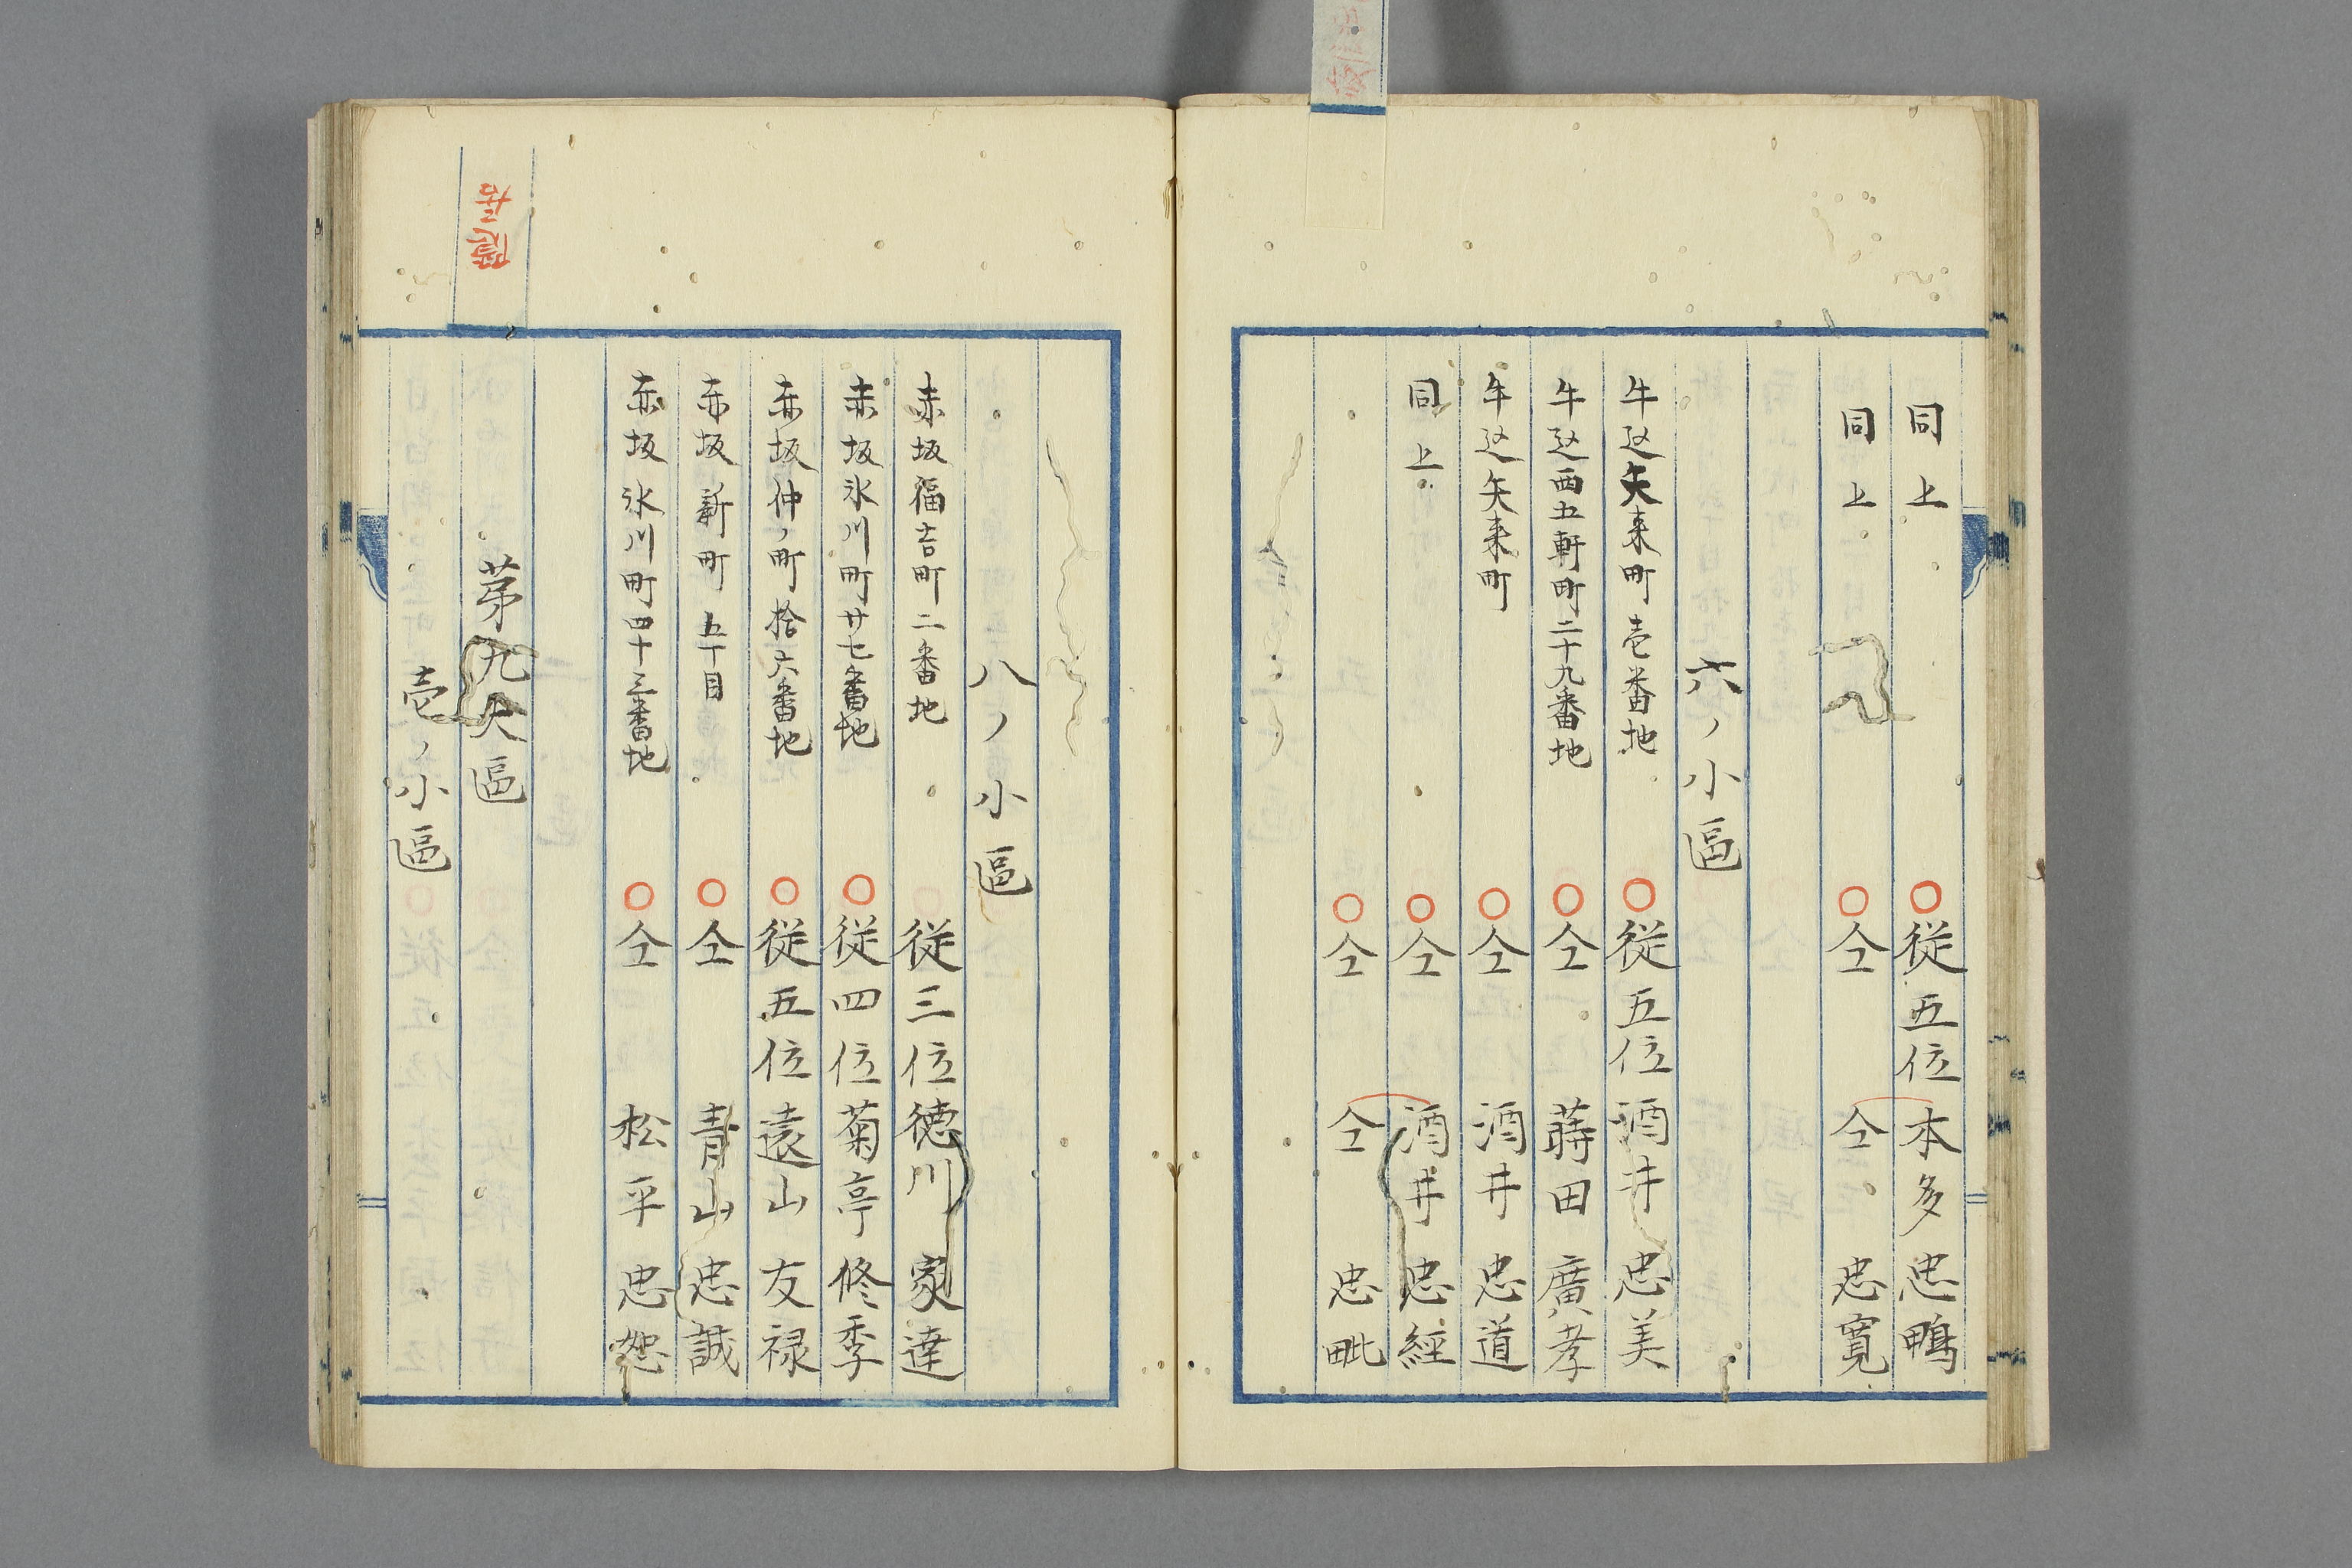 同上 ○従五位 本多忠鵬
同上 ○仝 仝 忠寛
六ノ小區
牛込矢来町壱番地 ○従五位 酒井忠美
牛込西五軒町二十九番地 ○仝 蒔田廣孝
牛込矢来町 ○仝 酒井忠道
同上 ○仝 酒井忠經
○仝 仝 忠毗
八ノ小區
赤坂福吉町二番地 従三位 徳川家達
赤坂氷川町廿七番地 ○従四位 菊亭脩季
赤坂仲ノ町拾六番地 ○従五位 遠山友禄
赤坂新町五丁目 ○仝 青山忠誠
赤坂氷川町四十三番地 ○仝 松平忠恕
隠居
第九大區
壱ノ小區